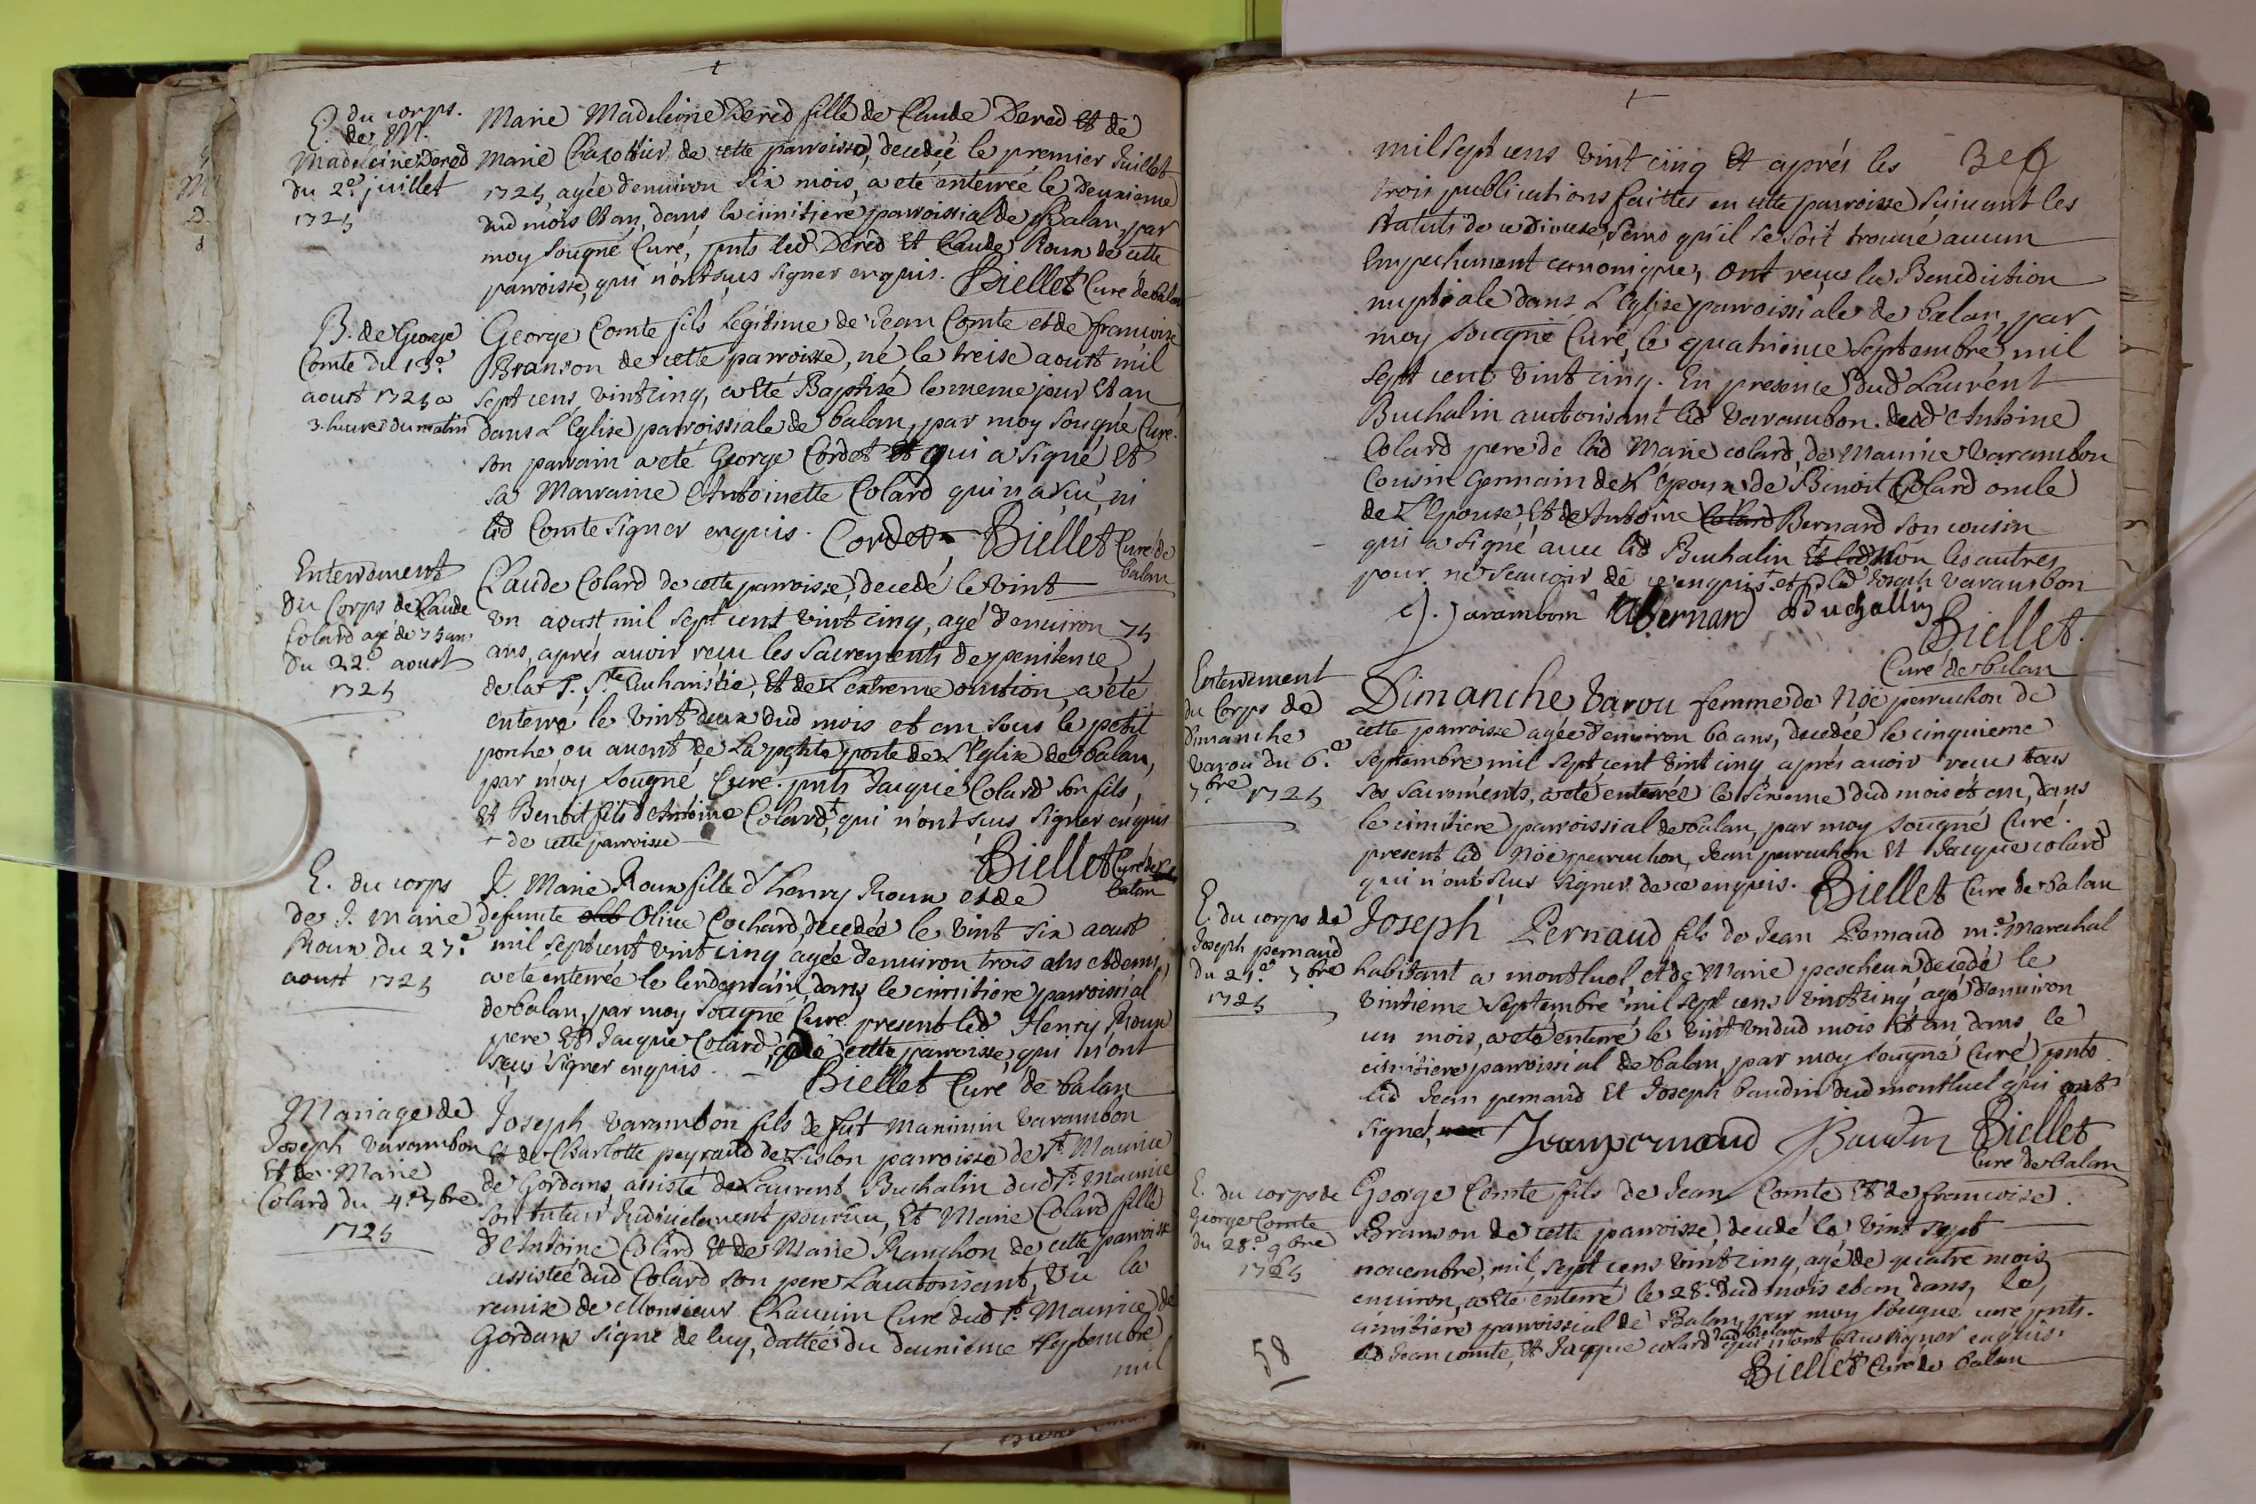 E. du corps.
de M.
Madeleine Dered
du 2e. juillet
1725
Marie Madeleine Dered fille de Claude Dered et de
Marie Chazottier de cette parroisse, decedée le premier Juillet
1725, agée d'environ six mois, a eté enterrée le deuxieme
dud mois et an, dans le cimitiere parroissial de Balan, par
moy sougné Curé, pnts led Dered et Claude Roux de cette
parroisse, qui n'ont sçus signer enquis. Biellet Curé de balan
B. de George
Comte du 13e.
aoust 1725 a
3. heures du matin
George Comte fils legitime de Jean Comte et de francoise
Branson de cette parroisse, né le treise aoust mil
sept cens vint cinq, a eté Baptisé le meme jour et an
dans L'Eglise parroissiale de balan, par moy sougné Curé.
son parrain a eté George Cordet et qui a signé et
sa Marraine Antoinette Colard qui n'a sçu, ni
led Comte signer enquis. Cordet Biellet Curé de
balan
Enterrement
du Corps de Claude
Colard agé de 75 ans
du 22e. aoust
1725
Claude Colard de cette parroisse, decedé le vint
un aoust mil sept cent vint cinq, agé d'environ 75
ans, aprés avoir reçu les sacrements de penitence
de la T. Ste Euharistie, et de L'extreme onction, a eté
enterré le vint deux dud mois et an sous le petit
porche ou auvent de La petite porte de L'Eglise de balan,
par moy sougné Curé. pnts Jacque Colard son fils,
et Benoit fils d'Antoine Colard + qui n'ont sçus signer enquis
+ de cette parroisse
Biellet Curé de
balan
E. du corps
de J. Marie
Roux du 27e.
aoust 1725
J. Marie Roux fille d'henry Roux et de
defuncte Olive Cochard, decedée le vint six aoust
mil sept cent vint cinq agée d'environ trois ans et demi,
a eté enterrée le lendemain, dans le cimitiere parroissial
de balan, par moy sougné Curé present led Henry Roux
pere et Jacque Colard de cette parroisse qui n'ont
sçus signer enquis. Biellet Curé de balan
Mariage de
Joseph Varambon
et de Marie
Colard du 4e. 7bre
1725
Joseph Varambon fils de fut Maximin Varambon
et de Charlotte peyraud de Lislon parroisse de St. Maurice
de Gordans, assisté de Laurent Buchalin dud St. Maurice
son tuteur Judicielement pourvu, et Marie Colard fille
d'Antoine Colard et de Marie Ranchon de cette parroisse
assistée dud Colard son pere L'autorisant, Vu la
remise de Monsieur Chauvin Curé dud St. Maurice de
Gordans signé de luy, dattée du deuxieme septembre
mil
mil sept cens vint cinq et aprés les
trois publications faittes en cette parroisse suivant les
statuts de ce diocese, sens qu'il se soit trouvé aucun
Empechement canonique, ont reçus la Benediction
nuptiale dans L'Eglise parroissiale de balan, par
moy sougné Curé, le quatrieme septembre mil
sept cent vint cinq. En presence dud Laurent
Buchalin autorisant led Varambon. dud Antoine
Colard pere de lad Marie colard, de Maurice Varambon
Cousin Germain de L'époux, de Benoit Colard oncle
de L'Epouse, et de Antoine Colard Bernard son cousin
qui a signé avec led Buchalin et led non les autres
pour ne sçavoir, de ce enquis. + et led Joseph Varambon
J. Varambom ABernard Buchallin Biellet.
Curé de balan
Enterrement
du Corps de
Dimanche
Varou du 6e.
7bre 1725
Dimanche Varou femme de Noë perruchon de
cette parroisse agée d'environ 60 ans, decedée le cinquieme
septembre mil sept cent vint cinq aprés avoir reçu tous
ses sacrements, a eté enterrée le sixieme dud mois et an, dans
le cimitiere parroissial de balan, par moy sougné Curé.
present led Noë perruchon, Jean perruchon et Jacque colard
qui n'ont sçus signer de ce enquis. Biellet Curé de balan
E. du corps de
Joseph pernaud
du 21e. 7bre
1725
Joseph Pernaud fils de Jean Pernaud me. Marechal
habitant a montluel, et de Marie pescheux decedé le
vintieme septembre mil sept cens vint cinq, agé d'environ
un mois, a eté enterré le vint un dud mois et an dans le
cimitiere parroissial de balan, par moy sougné Curé, pnts
led Jean pernaud et Joseph baudin dud montluel qui ont
signé, Jean pernaud Baudin Biellet
Curé de balan
E. du corps de
George Comte
du 28e. 9bre
1725
George Comte fils de Jean Comte et de francoise
Branson de cette parroisse, decedé le vint sept
novembre, mil sept cens vint cinq, agé de quatre mois
environ, a eté enterré le 28e. dud mois et an, dans le
cimitiere parroissial de Balan, par moy sougné curé pnts.
led Jean comte, et Jacque colard dud balan qui n'ont sçus signer enquis.
Biellet Curé de balan
58